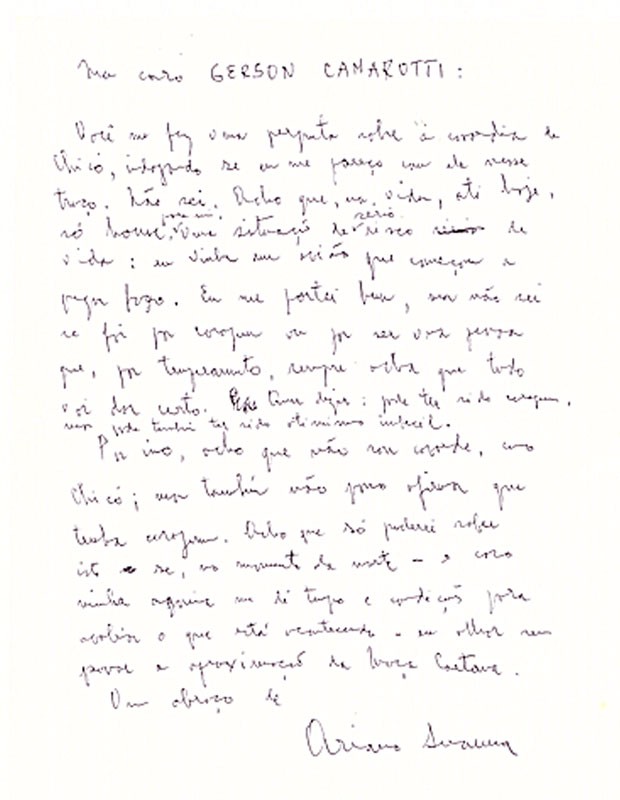 Meu caro GERSON CAMAROTTI:
Você me fez uma pergunta sobre a covardia de
Chicó, indagando se eu me pareço com ele nesse
traço. Não sei. Acho que, na vida, até hoje,
só houve, para mim, uma situação de sério risco de
vida: eu vinha num avião que começou a
pegar fogo. Eu me portei bem, mas não sei
se foi por coragem ou por ser uma pessoa
que, por temperamento, sempre acha que tudo
vai dar certo. Quer dizer: pode ter sido coragem,
mas pode também ter sido otimismo imbecil.
Por isso, acho que não sou covarde, como
Chicó; mas também não posso afirmar que
tenha coragem. Acho que só poderei saber
isto se, no momento da morte - e caso
minha agonia me dê tempo e condições para
avaliar o que está acontecendo - eu olhar sem
pavor a aproximação da Moça Caetana.
Um abraço de
Ariano Suassuna